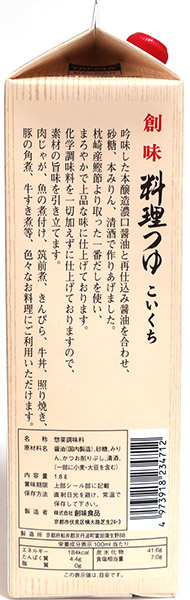 創味
料理つゆ こいくち
吟味した本醸造濃口醤油と再仕込み醤油を合わせ、
砂糖、本みりん、清酒で仕上げました。
枕崎産鰹節より取った一番だしを使い、
まろやかで上品な味に仕上げております。
化学調味料を一切加えずに仕上げておりますので、
素材の旨味を引き立てます。
肉じゃが、魚の煮付け、筑前煮、きんぴら、牛丼、照り焼き、
豚の角煮、牛すき煮等、色々なお料理にご利用いただけます。
名称 惣菜調味料
原材料名 醤油(国内製造)、砂糖、みりん、かつお削りぶし、清酒、(一部に小麦・大豆を含む)
内容量 1.8ℓ
賞味期限 上部シール部に記載
保存方法 直射日光を避け、常温で保存して下さい。
製造者 株式会社 創味食品
京都市伏見区横大路芝生24-3
製造所
栄養成分表示 100ml当たり
エネルギー 184kcal 炭水化物 41.6g
たんぱく質 4.4g 食塩相当量 7.0g
脂質 0g
この表示値は、目安です。
4 973918 234712